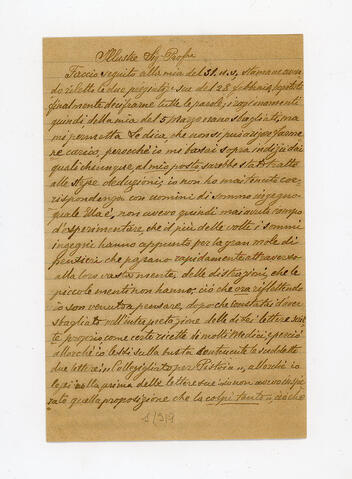 Illustre Sig. Profre
Faccio seguito alla mia del 31. u. s, stamane aven
do rilette le due preg. sue del 28 febbraio,
finalmente decifrarne tutte le parole, i ragionamenti
quindi della mia del 5 Marzo erano sbagliati, ma
mi permetta Le dica, che non si può a rigor farme
ne carico, perecchè io mi basai sopra indizj dai
quali chiunque, al mio posto sarebbe stato tratto
alle stesse deduzioni; io non ho mai tenuto cor,
rispondenza con uomini di sommo ingegno
quale Ella è, non avevo quindi mai avuto campo
d'esperimentare, che il più delle volte i sommi
ingegni hanno appunto per la gran mole di
pensieri che passano rapidamente attraverso
alla loro vasta mente, delle distrazioni, che le
piccole menti non hanno; ciò che ora riflettendo
io son venuto a pensare, dopo che constatai d'aver
sbagliato nell'interpretazione delle di Lei lettere
proprio come certe ricette di molti Medici; e perciò
allorchè io lessi sulla busta contenente le suddette
due lettere, allorchè io
lessi nella prima delle lettere sue
quella proposizione che la colpì tanto
1/319